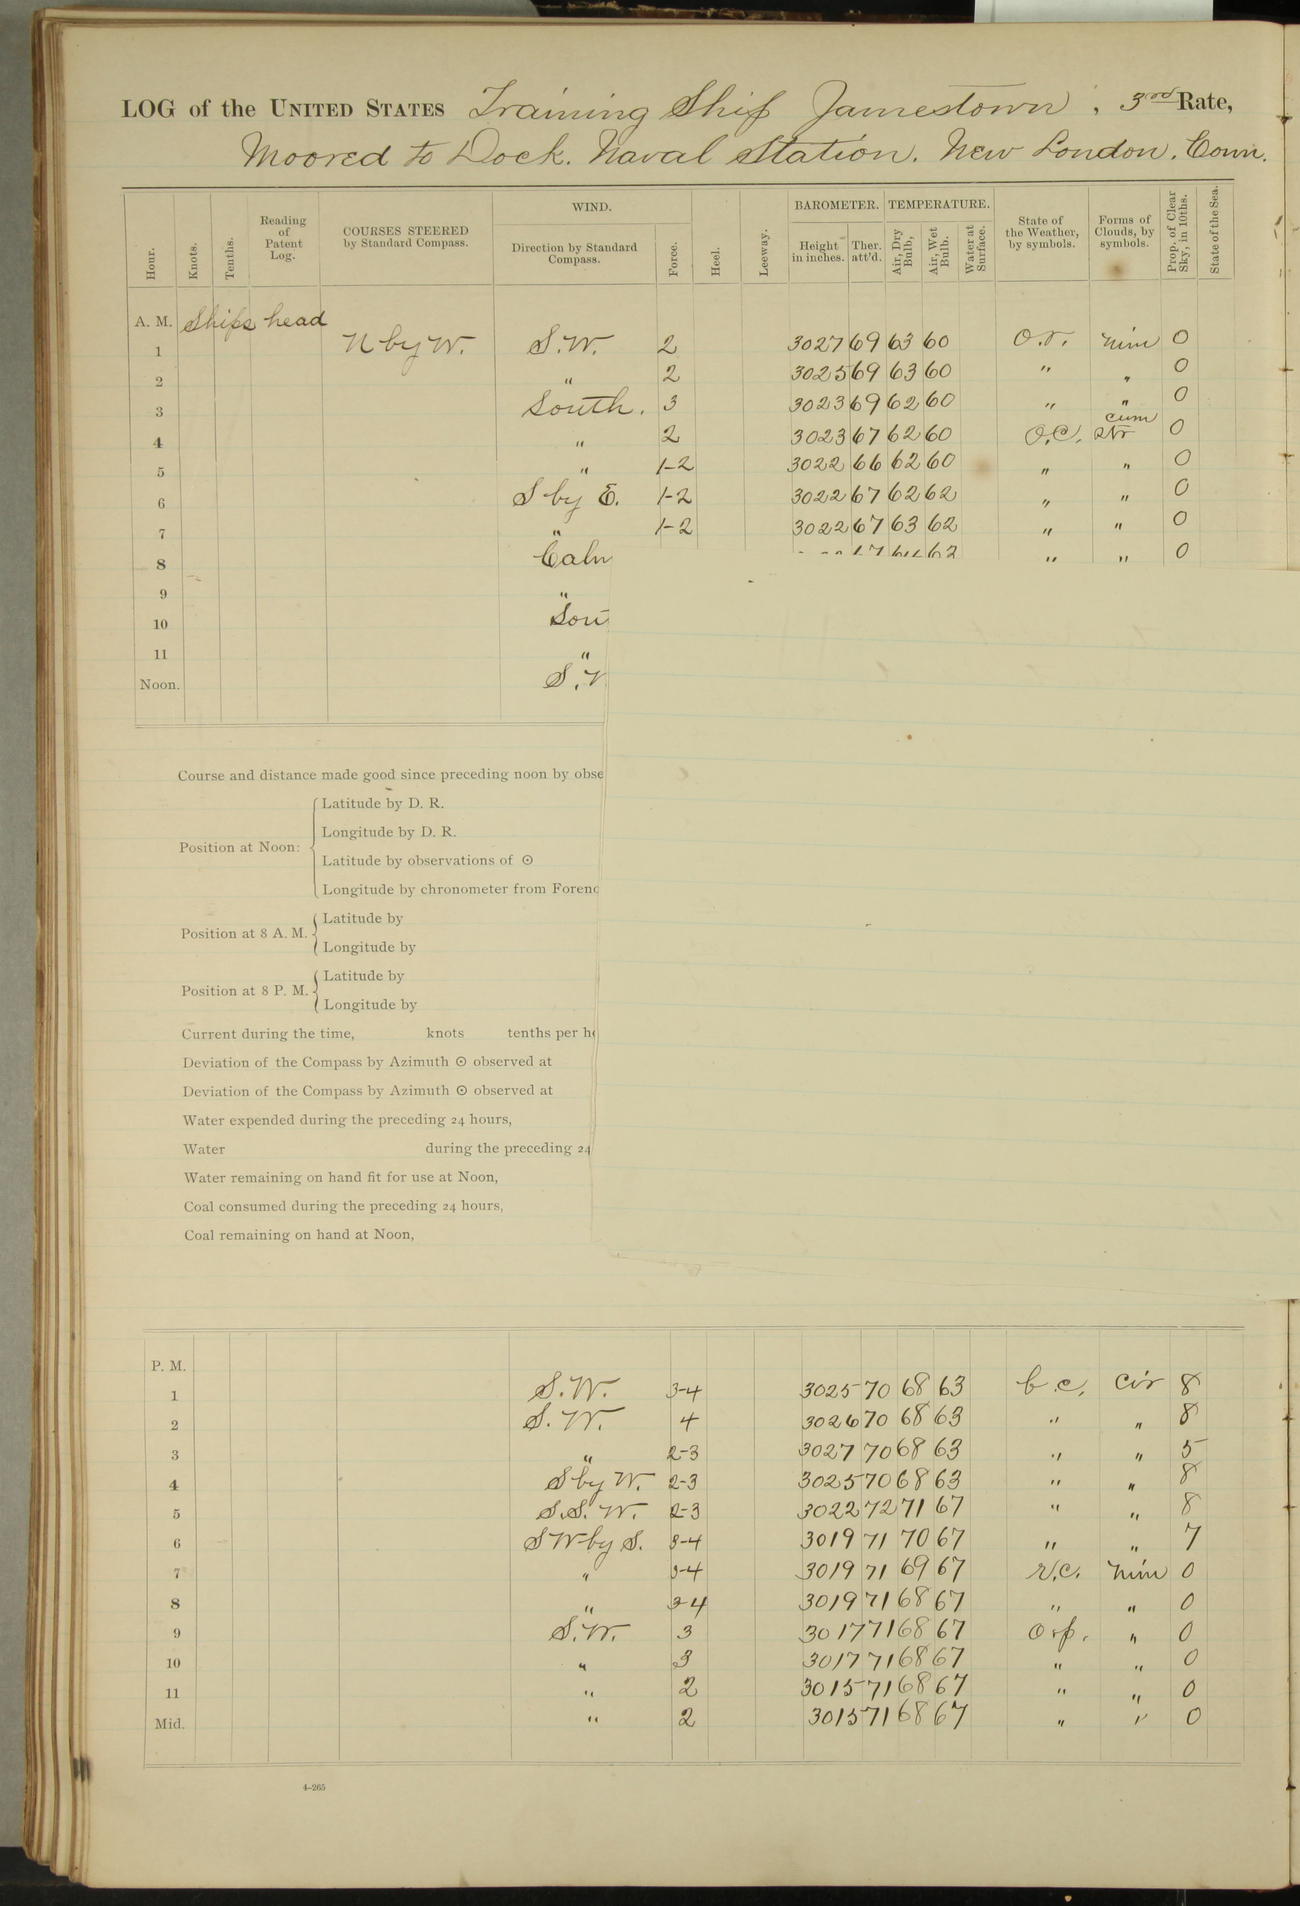 LOG of the UNITED STATES Training Ship Jamestown, 3rd Rate,
Moored to Dock. Naval Station. New London. Conn.
Hour. Knots. Tenths. Reading of Patent Log. COURSES STEERED by Standard Compass. WIND. Direction by Standard Compass. Force. Heel. Leeway. BAROMETER. Height in inches. Ther. att'd. TEMPERATURE. Air, Dry Bulb, Air, Wet Bulb. Water at Surface. State of the Weather, by symbols. Forms of Clouds, by symbols. Prop. of Clear Sky, in 10ths. State of the Sea.
A. M. Ships head
1 N by W. S.W. 2 3027 69 63 60 O.r. nim 0
2 " 2 3025 69 63 60 " " 0
3 South. 3 3023 69 62 60 " " 0
4 " 2 3023 67 62 60 O.C. cum str 0
5 " 1-2 3022 66 62 60 " " 0
6 S by E. 1-2 3022 67 62 62 " " 0
7 " 1-2 3022 67 63 62 " " 0
8 Calm " " 0
9 "
10 Sou
11 "
Noon. S.W
Course and distance made good since preceding noon by obse
Position at Noon: Latitude by D. R.
Longitude by D. R.
Latitude by observations of ⊙
Longitude by chronometer from Foreno
Position at 8 A. M. Latitude by
Longitude by
Position at 8 P. M. Latitude by
Longitude by
Current during the time, knots tenths per ho
Deviation of the Compass by Azimuth ⊙ observed at
Deviation of the Compass by Azimuth ⊙ observed at
Water expended during the preceding 24 hours,
Water during the preceding 24
Water remaining on hand fit for use at Noon,
Coal consumed during the preceding 24 hours,
Coal remaining on hand at Noon,
P. M.
1 S.W. 3-4 3025 70 68 63 b.c. Cir 8
2 S.W. 4 3026 70 68 63 " " 8
3 " 2-3 3027 70 68 63 " " 5
4 S by W. 2-3 3025 70 68 63 " " 8
5 S.S.W. 2-3 3022 72 71 67 " " 8
6 SW by S. 3-4 3019 71 70 67 " " 7
7 " 3-4 3019 71 69 67 r.c. nim 0
8 " 3-4 3019 71 68 67 " " 0
9 S.W. 3 3017 71 68 67 O rp. " 0
10 " 3 3017 71 68 67 " " 0
11 " 2 3015 71 68 67 " " 0
Mid. " 2 3015 71 68 67 " " 0
4-265